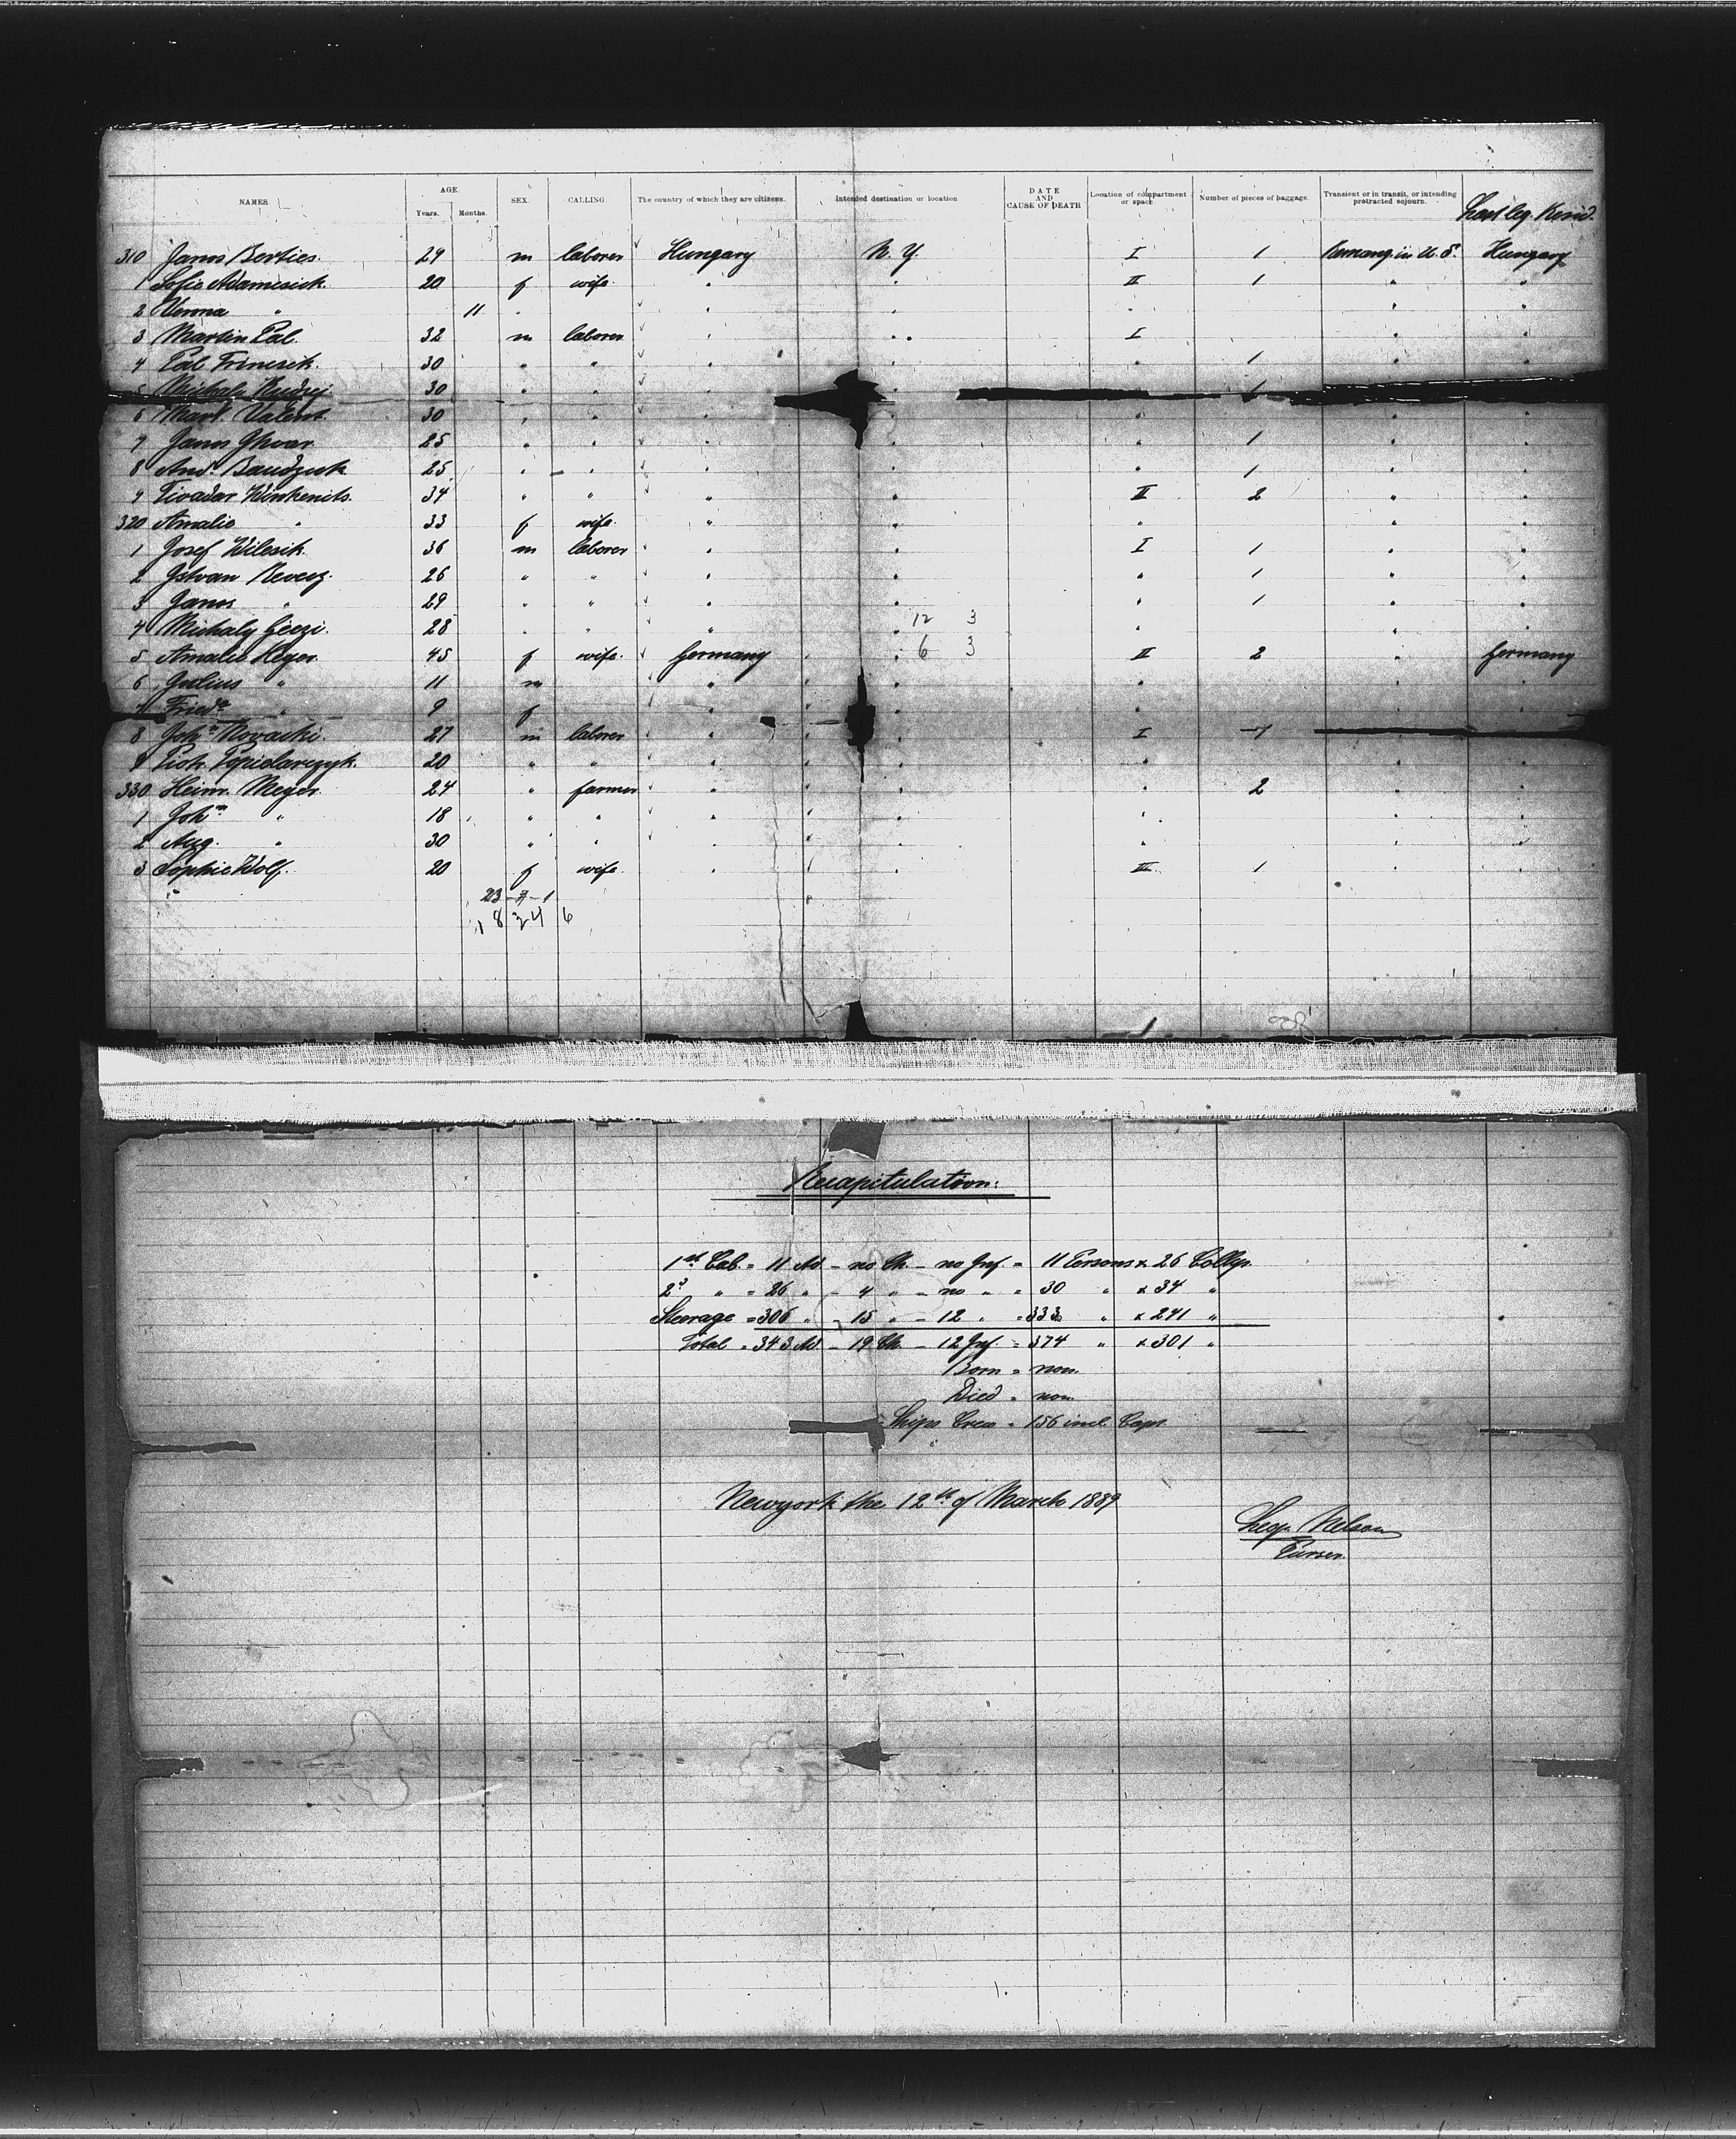 NAMES AGE. Years. Months. SEX. CALLING The country of which they are citizens. Intended destination or location DATE AND CAUSE OF DEATH Location of compartment or space Number of pieces of baggage. Transient or in transit, or intending protracted sojourn. Last leg. Resid.
310 Janos Berties. 29 m laborer Hungary N. Y. I 1 Remang. in U. S. Hungary
1 Sofie Adamisick. 20 f wife " " II 1 " "
2 Verona " 11 " " " " " "
3 Martin Pal. 32 m laborer " " I " "
4 Pal Frincsik. 30 " " " " " 1 " "
5 Michaly Rudzej 30 " " " " 1
6 Mart. Valent. 30 " " " " " " "
7 Janos Ghvar. 25 " " " " " 1 " "
8 And. Baudzuk 25 " " " " " 1 " "
9 Tivadar Winkenits. 34 " " " " II 2 " "
320 Amalie " 33 f wife " " " " "
1 Josef Wilesik. 36 m laborer " " I 1 " "
2 Istvan Revesz. 26 " " " " " 1 " "
3 Janos " 29 " " " " " 1 " "
12 3
4 Michaly Geczi. 28 " " " " " " "
6 3
5 Amalie Heger. 45 f wife Germany " II 2 " Germany
6 Julius " 11 m " " " " "
7 Frieda " 9 f " " " " "
8 Joh.n Novacki. 27 m laborer " " I 1 " "
9 Piotr. Popielarczyk. 20 " " " " " " "
330 Heinr. Meyer. 24 " farmer " " " 2 " "
1 Joh.n " 18 " " " " " " "
2 Aug. " 30 " " " " " " "
3 Sophie Wolf. 20 f wife " " III 1 " "
23
18 24 6
Recapitulation:
1st Cab. = 11 Ad – no Ch. – no Inf. = 11 Persons x 26 Collys.
2d " = 26 " – 4 " – no " = 30 " x 34 "
Steerage = 306 " – 15 " – 12 " = 333 " x 241 "
Total = 343 Ad. – 19 Ch. – 12 Inf. = 374 " x 301 "
Born = non.
Died = non.
Ships Crew = 156 incl. Capt.
Newyork the 12th of March 1889
Nelson
Purser.